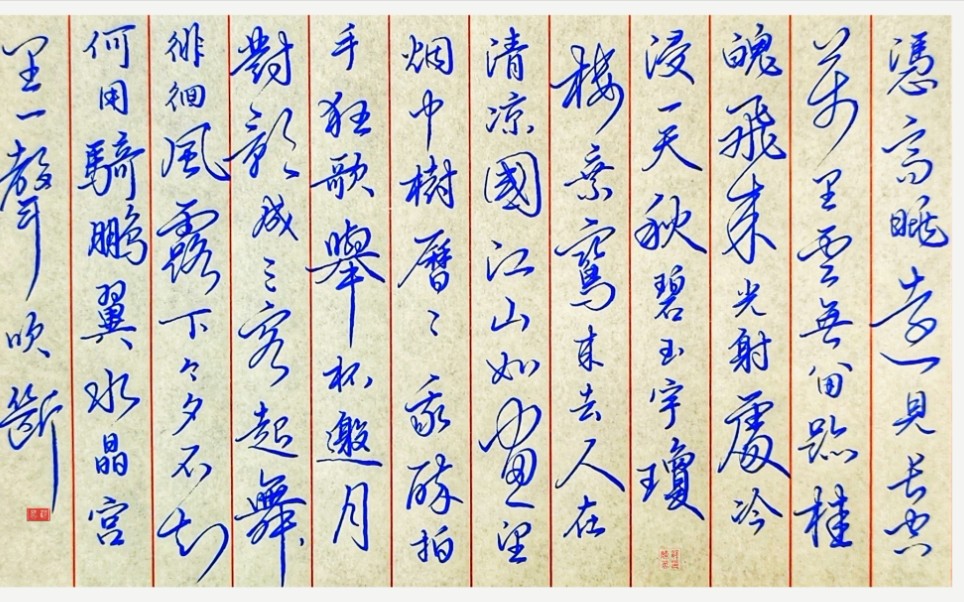 憑高眺遠見長空
萬里雲無留跡桂
魄飛來光射處冷
浸一天秋碧玉宇瓊
樓乘鸞來去人在
清凉國江山如畫望
烟中樹曆々我醉拍
手狂歌舉杯邀月
對影成三客起舞
徘徊風露下今夕不知
何用騎鵬翼水晶宮
里一聲吹斷